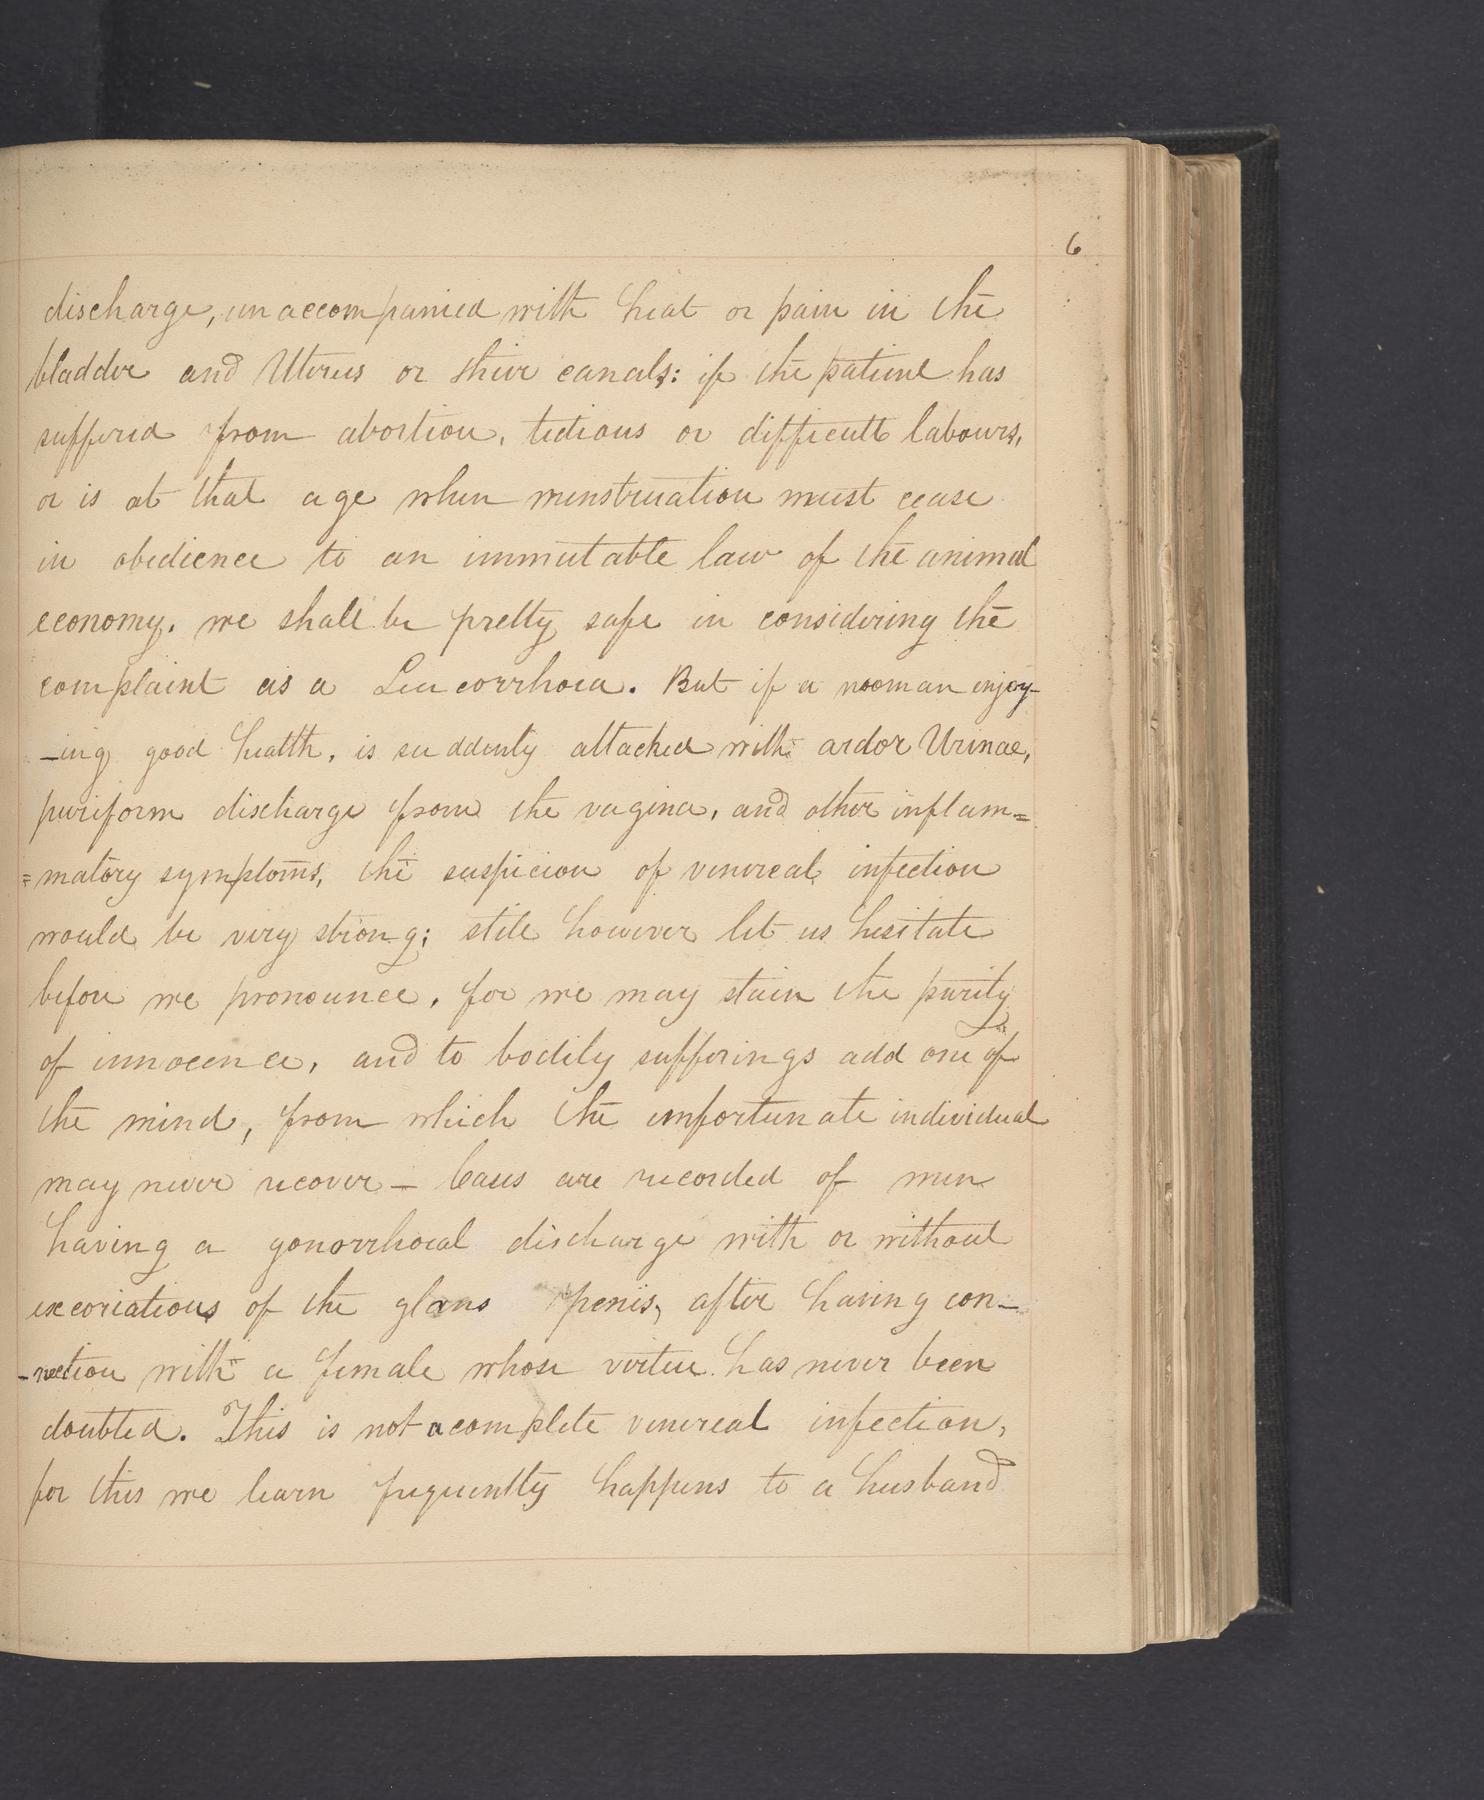 6
discharge, unaccompanied with heat or pain in the
bladder and Uterus or their canals: if the patient has
suffered from abortion, tedious or difficult labours,
or is at that age when menstruation must cease
in obedience to an immutable law of the animal
economy. we shall be pretty safe in considering the
complaint as a Leucorrhoea. But if a wooman enjoy-
-ing good health, is suddenly attacked with ardor Urinae,
puriform discharge from the vagina, and other inflam=
=matory symptoms, the suspicion of venereal infection
would be very strong; still however let us hesitate
before we pronounce, for we may stain the purity
of innocence, and to bodily sufferings add one of
the mind, from which the unfortunate individual
may never recover - Cases are recorded of men
having a gonorrhoeal discharge with or without
excoriations of the glans penis, after having con-
-nection with a female whose virtue has never been
doubted. This is not a complete venereal infection,
for this we learn frequently happens to a husband